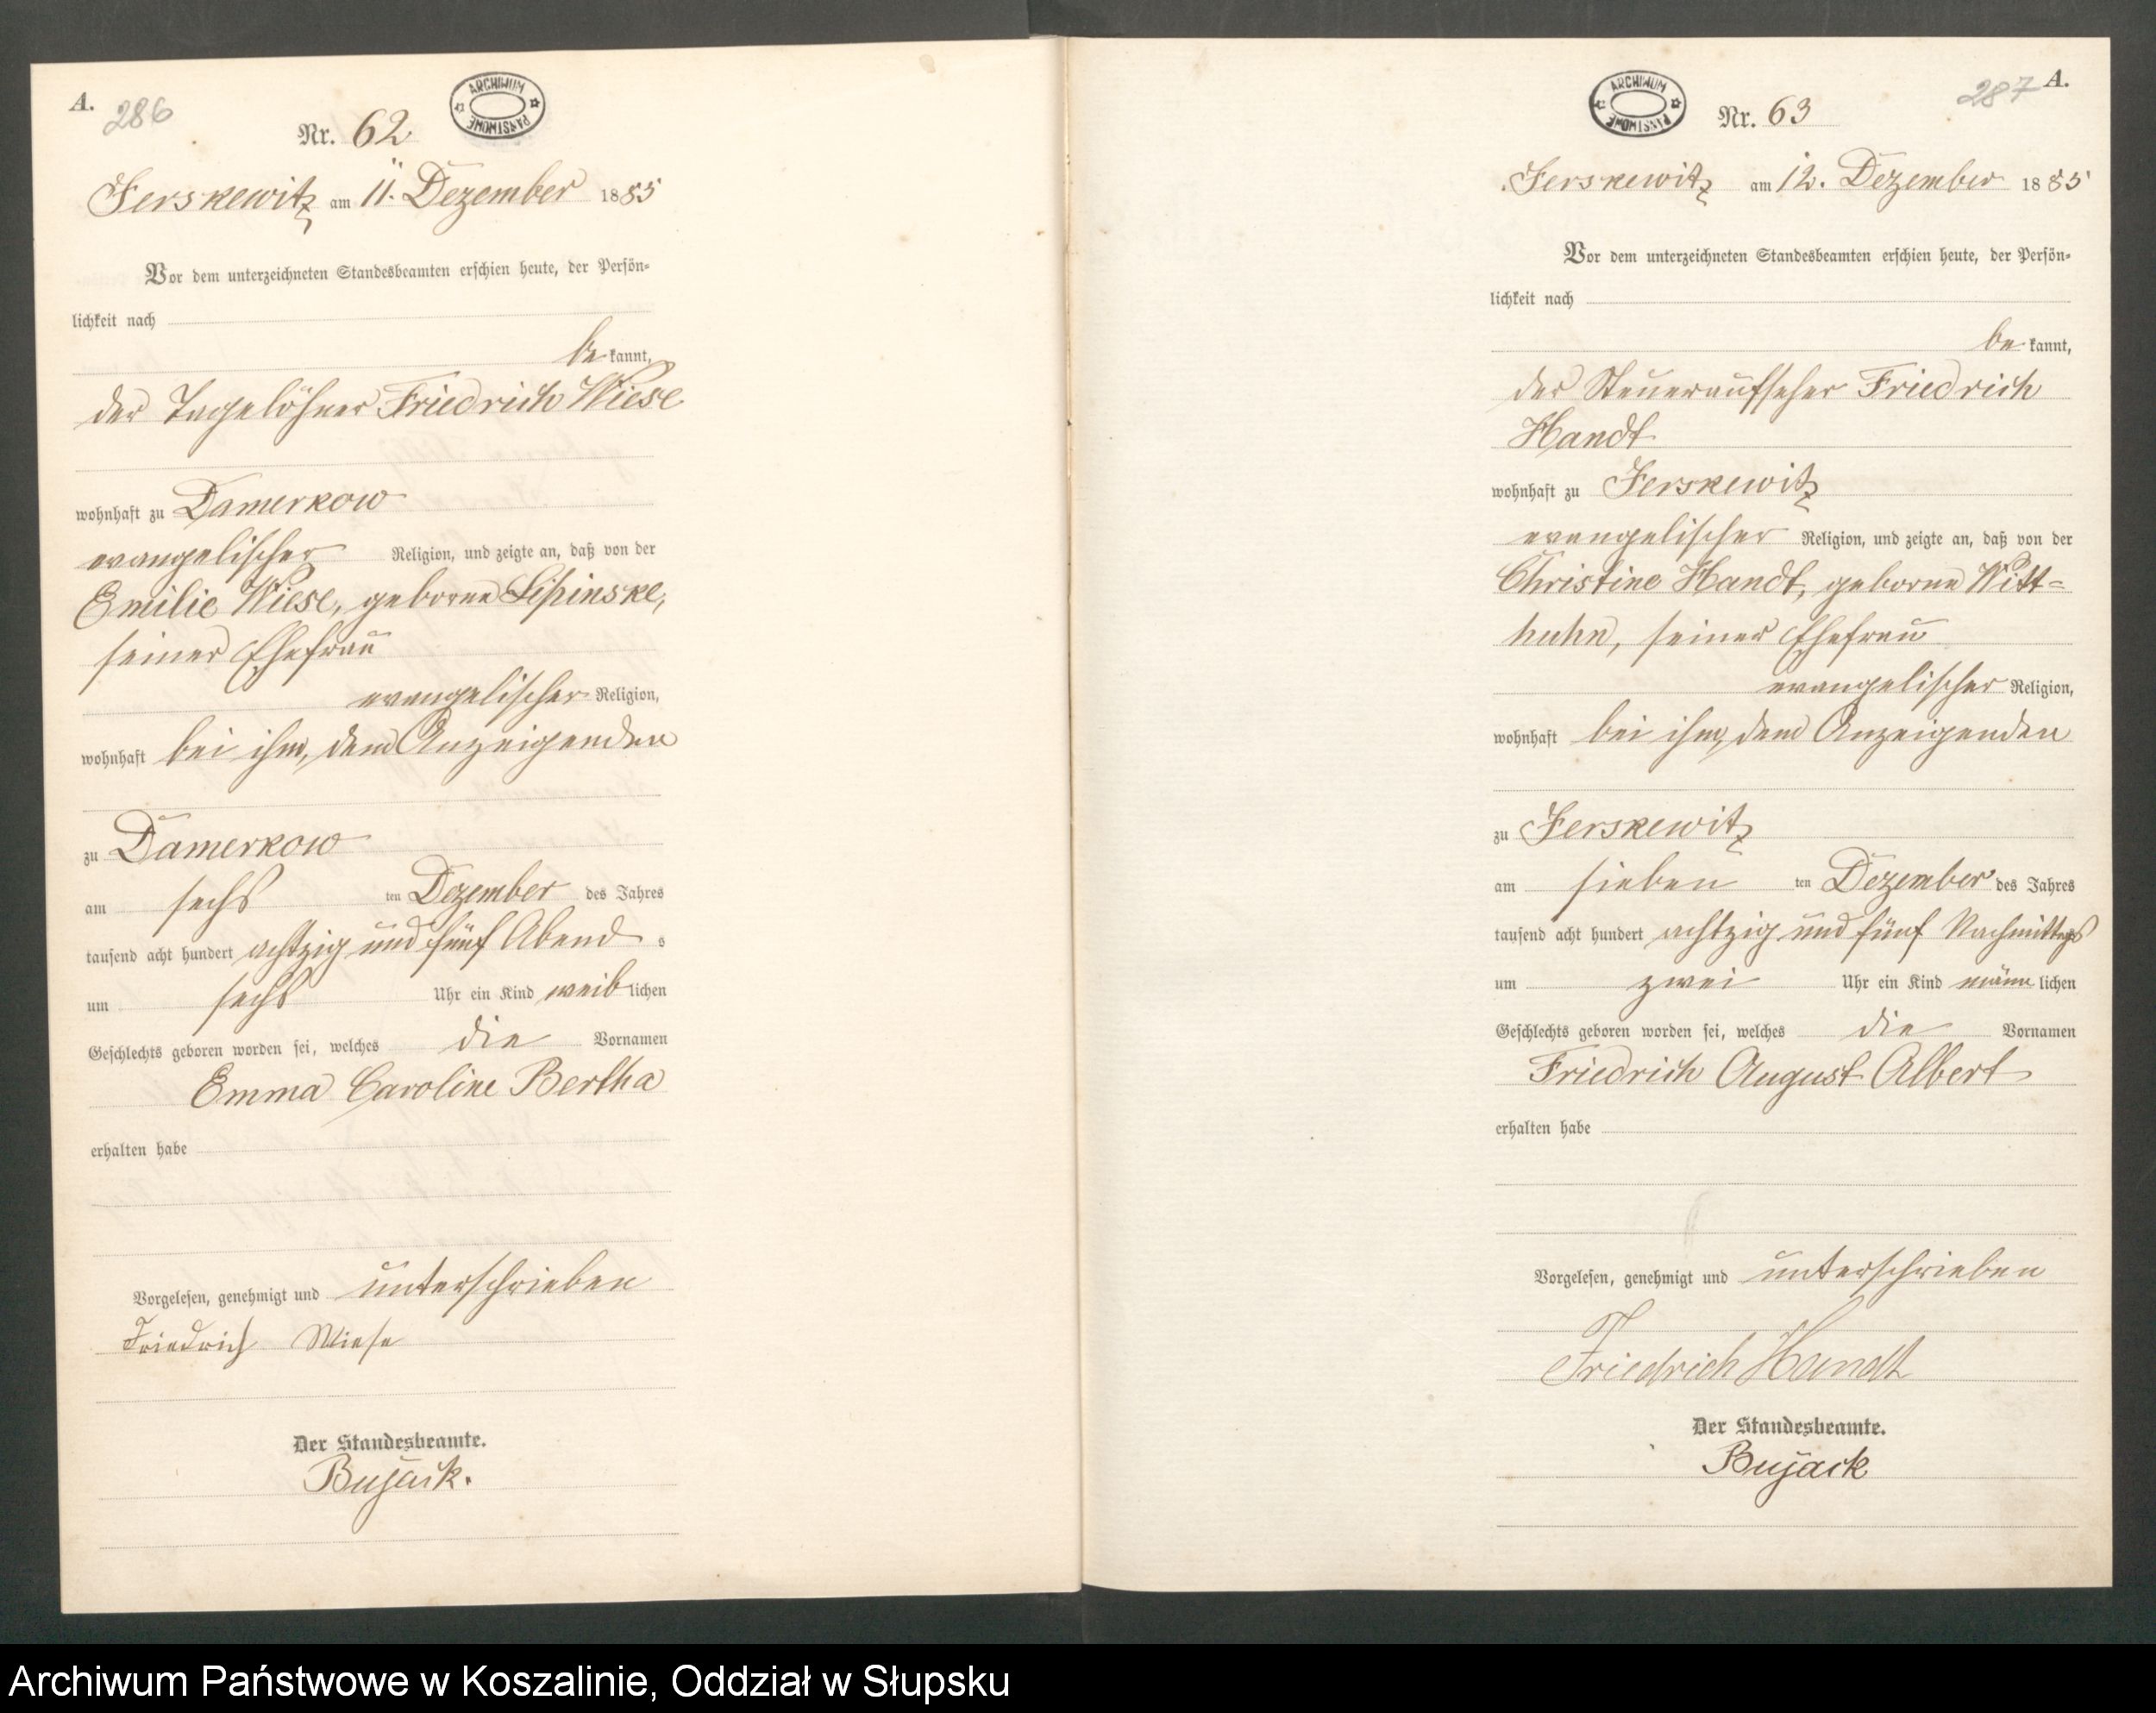 A.
286
ARCHIWUM PAŃSTWOWE
Nr. 62
Ferskewitz am 11. Dezember 1885
Vor dem unterzeichneten Standesbeamten erschien heute, der Persön-
lichkeit nach
be kannt,
der Tagelöhner Friedrich Wiese
wohnhaft zu Damerkow
evangelischer Religion, und zeigte an, daß von der
Emilie Wiese, geborne Lipinske,
seiner Ehefrau
evangelischer Religion,
wohnhaft bei ihm, dem Anzeigenden
zu Damerkow
am sechs ten Dezember des Jahres
tausend acht hundert achtzig und fünf Abend s
um sechs Uhr ein Kind weib lichen
Geschlechts geboren worden sei, welches die Vornamen
Emma Caroline Bertha
erhalten habe
Vorgelesen, genehmigt und unterschrieben
Friedrich Wiese
Der Standesbeamte.
Bujack.
287 A.
ARCHIWUM PAŃSTWOWE
Nr. 63
Ferskewitz am 12. Dezember 1885
Vor dem unterzeichneten Standesbeamten erschien heute, der Persön-
lichkeit nach
be kannt,
der Steueraufseher Friedrich
Handt
wohnhaft zu Ferskewitz
evangelischer Religion, und zeigte an, daß von der
Christine Handt, geborne Witt-
huhn, seiner Ehefrau
evangelischer Religion,
wohnhaft bei ihm, dem Anzeigenden
zu Ferskewitz
am sieben ten Dezember des Jahres
tausend acht hundert achtzig und fünf Nachmittags
um zwei Uhr ein Kind männ lichen
Geschlechts geboren worden sei, welches die Vornamen
Friedrich August Albert
erhalten habe
Vorgelesen, genehmigt und unterschrieben
Friedrich Handt
Der Standesbeamte.
Bujack
Archiwum Państwowe w Koszalinie, Oddział w Słupsku